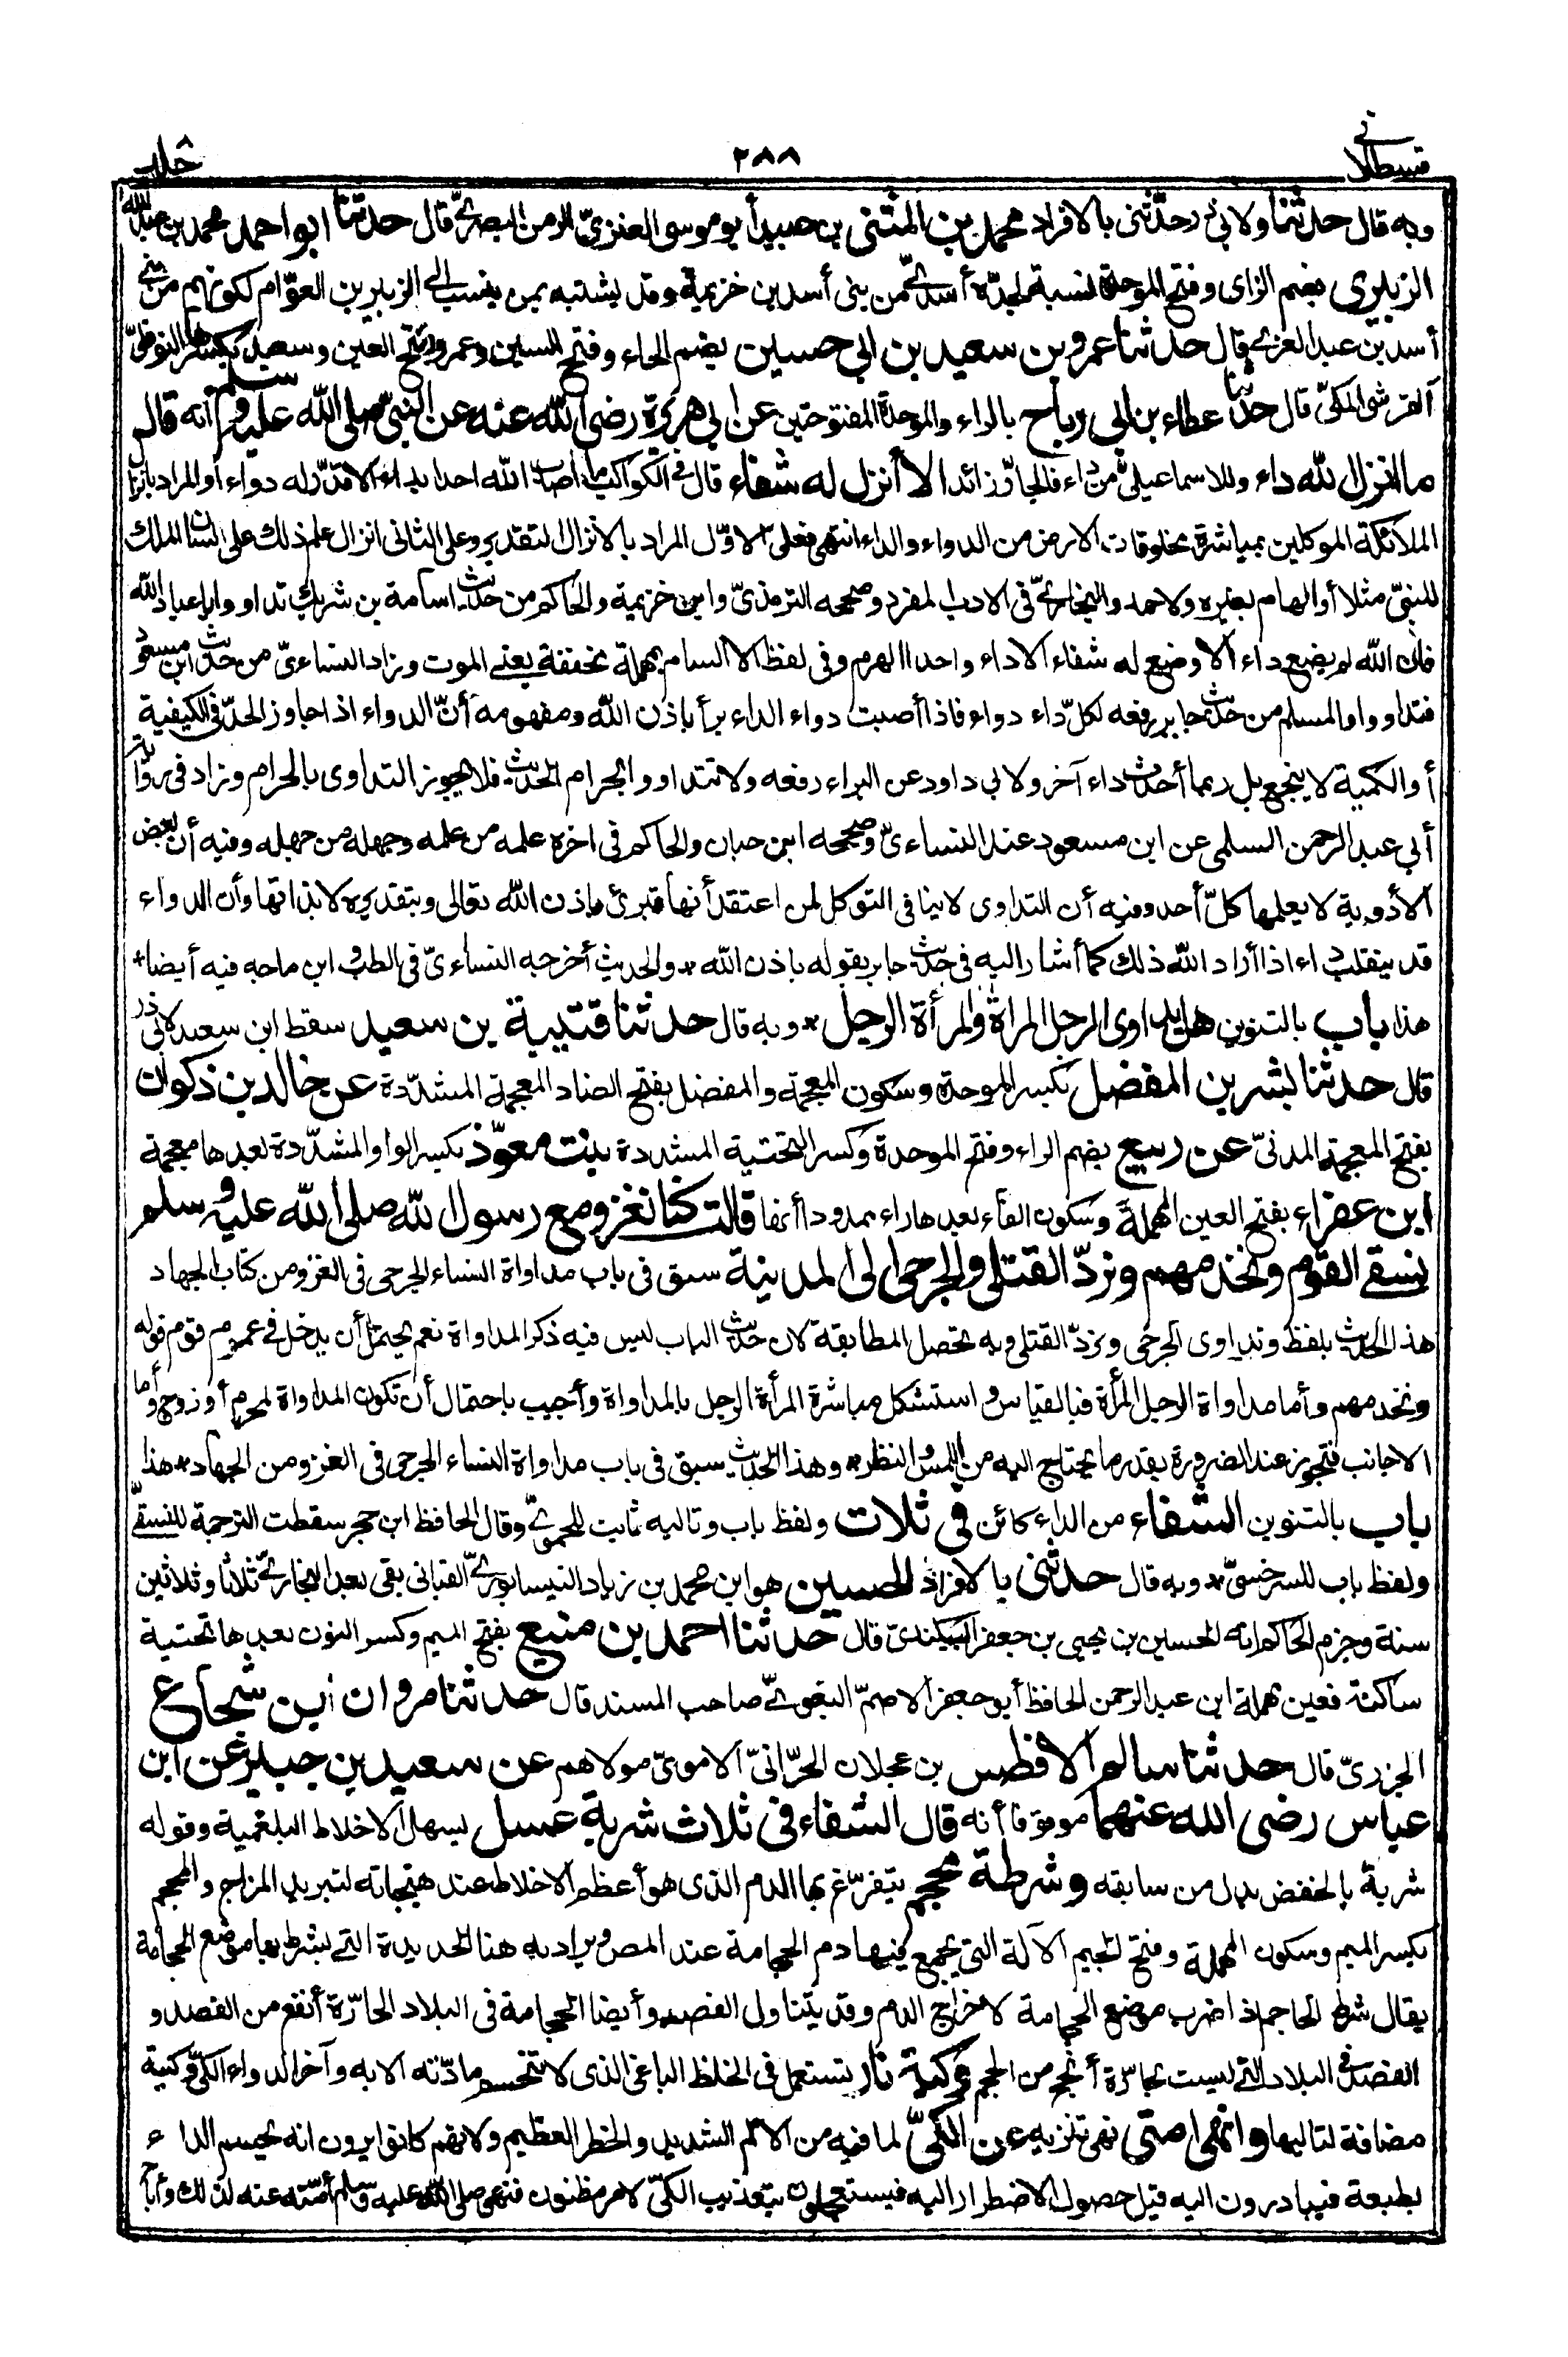 قسطلانی ٢٨٨ جلد ٨
وبه قال حدثنا ولابي ذر حدّثني بالافراد محمد بن المثنى بن عبيد أبو موسى العنزيّ الزمن البصريّ قال حدثنا ابو احمد محمد بن عبد الله
الزبيري بضم الزاى وفتح الموحدة نسبة لجدّه أسديّ من بني أسد بن خزيمة وقد يشتبه بمن ينسب الى الزبير بن العوّام لكونهم من بني
أسد بن عبد العزى قال حدثنا عمرو بن سعيد بن ابي حسين بضم الحاء وفتح السين وعمرو بفتح العين وسعيد بكسرها النوفليّ
القرشي المكيّ قال حدّثنا عطاء بن ابي رباح بالراء والموحدة المفتوحتين عن ابي هريرة رضي الله عنه عن النبيّ صلى الله عليه وسلم أنه قال
ما انزل الله داء وللاسماعيليّ من داء فالجارّ زائد الا أنزل له شفاء قال في الكواكب ما أصاب الله احدا بداء الا قدّر له دواء أو المراد بانزال
الملائكة الموكلين بمباشرة مخلوقات الارض من الدواء والداء انتهى فعلى الاوّل المراد بالانزال التقدير وعلى الثاني انزال علم ذلك على لسان الملك
للنبيّ مثلا أو الهام بغيره ولاحمد والبخاريّ في الادب المفرد وصححه الترمذيّ وابن خزيمة والحاكم من حديث اسامة بن شريك تداووا يا عباد الله
فان الله لم يضع داء الا وضع له شفاء الا داء واحدا الهرم وفي لفظ الا السام بمهملة مخففة يعني الموت وزاد النساءيّ من حديث ابن مسعود
فتداووا ولمسلم من حديث جابر رفعه لكلّ داء دواء فاذا أصيب دواء الداء برأ باذن الله ومفهومه أنّ الدواء اذا جاوز الحدّ في الكيفية
أو الكمية لا ينجع بل ربما أحدث داء آخر ولابي داود عن ابي الدرداء رفعه ولا تتداووا بحرام الحديث فلا يجوز التداوى بالحرام وزاد في رواية
أبي عبد الرحمن السلمي عن ابن مسعود عند النساءيّ وصححه ابن حبان والحاكم في اخره علمه من علمه وجهله من جهله وفيه أن بعض
الأدوية لا يعلمها كلّ أحد وفيه أن التداوى لا ينافي التوكل لمن اعتقد أنها تبرئ باذن الله تعالى وبتقديره لا بذاتها وأن الدواء
قد ينقلب داء اذا أراد الله ذلك كما أشار اليه في حديث جابر بقوله باذن الله * والحديث أخرجه النساءيّ في الطب وابن ماجه فيه أيضا *
هذا باب بالتنوين هل يداوى الرجل المرأة والمرأة الرجل * وبه قال حدثنا قتيبة بن سعيد سقط ابن سعيد لابي ذر
قال حدثنا بشر بن المفضل بكسر الموحدة وسكون المعجمة والمفضل بفتح الضاد المعجمة المشدّدة عن خالد بن ذكوان
بفتح المعجمة المدنيّ عن ربيع بضم الراء وفتح الموحدة وكسر التحتية المشددة بنت معوّذ بكسر الواو المشدّدة بعدها معجمة
ابن عفراء بفتح العين المهملة وسكون الفاء بعدها راء ممدودا أنها قالت كنا نغزو مع رسول الله صلى الله عليه وسلم
نسقي القوم ونخدمهم ونردّ القتلى والجرحى الى المدينة سبق في باب مداواة النساء الجرحى في الغزو من كتاب الجهاد
هذا الحديث بلفظ ونداوى الجرحى ونردّ القتلى وبه تحصل المطابقة لان حديث الباب ليس فيه ذكر المداواة نعم يحتمل أن يدخل في عموم قوله
ونخدمهم وأما مداواة الرجل المرأة فبالقياس واستشكل مباشرة المرأة الرجل بالمداواة وأجيب باحتمال أن تكون المداواة لمحرم أو زوج وأما
الاجانب فتجوز عند الضرورة بقدر ما يحتاج اليه من اللمس والنظر * وهذا الحديث سبق في باب مداواة النساء الجرحى في الغزو من الجهاد * هذا
باب بالتنوين الشفاء من الداء كائن في ثلاث ولفظ باب وتاليه ثابت للحمويّ وقال الحافظ ابن حجر سقطت الترجمة للنسفيّ
ولفظ باب للسرخسيّ * وبه قال حدثني بالافراد الحسين هو ابن محمد بن زياد النيسابوريّ القباني بقي بعد البخاريّ ثلاثا وثلاثين
سنة وجزم الحاكم انه الحسين بن يحيى بن جعفر البيكنديّ قال حدثنا احمد بن منيع بفتح الميم وكسر النون بعدها تحتية
ساكنة فعين مهملة ابن عبد الرحمن الحافظ أبو جعفر الاصمّ البغويّ صاحب المسند قال حدثنا مروان ابن شجاع
الجزريّ قال حدثنا سالم الافطس بن عجلان الحرّانيّ الامويّ مولاهم عن سعيد بن جبير عن ابن
عباس رضي الله عنهما موقوفا أنه قال الشفاء في ثلاث شربة عسل يسهل الاخلاط البلغمية وقوله
شربة بالخفض بدل من سابقه وشرطة محجم يتفرّغ بها الدم الذى هو أعظم الاخلاط عند هيجانه لتبريد المزاج والمحجم
بكسر الميم وسكون المهملة وفتح الجيم الآلة التي يجمع فيها دم الحجامة عند المص ويراد به هنا الحديدة التي يشرط بها موضع الحجامة
يقال شرط الحاجم اذا ضرب موضع الحجامة لاخراج الدم وقد يتناول الفصد وأيضا الحجامة في البلاد الحارّة أنفع من الفصد و
الفصد في البلاد التي ليست بحارّة أنجح من الحجم وكية نار تستعمل في الخلط الباغي الذى لا تنحسم مادّته الا به وآخر الدواء الكيّ وكية
مضافة لتاليها وانهى امتي نهي تنزيه عن الكيّ لما فيه من الألم الشديد والخطر العظيم ولانهم كانوا يرون انه يحسم الداء
بطبعه فيبادرون اليه قبل حصول الاضطرار اليه فيستعجلون بتعذيب الكيّ لامر مظنون فنهى صلى الله عليه وسلم أمّته عنه لذلك وأباح